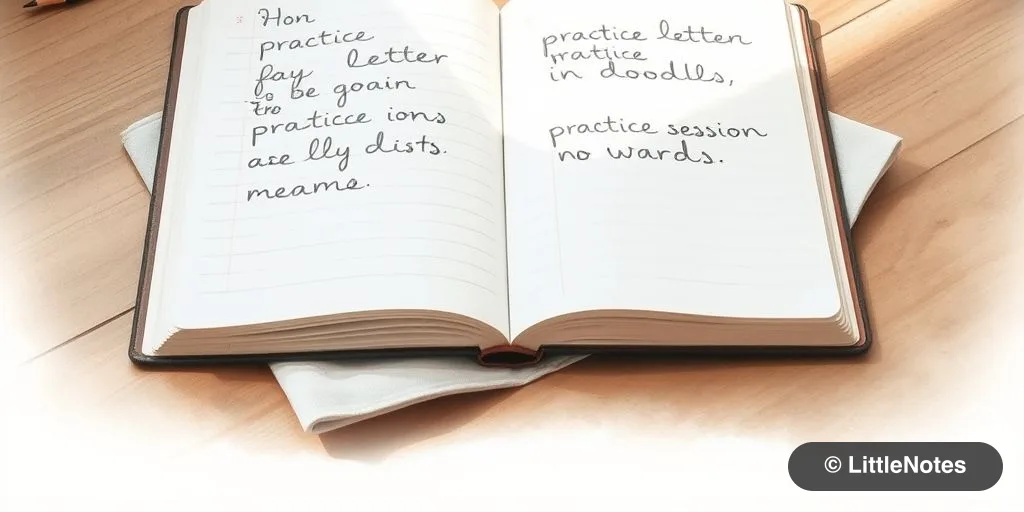 Hon
practice
fay letter
to be goain
tro
praticce ions
are lly dists.
meame.
practice letten
pratjice
in doodlls,
practice session
no wards.
© LittleNotes